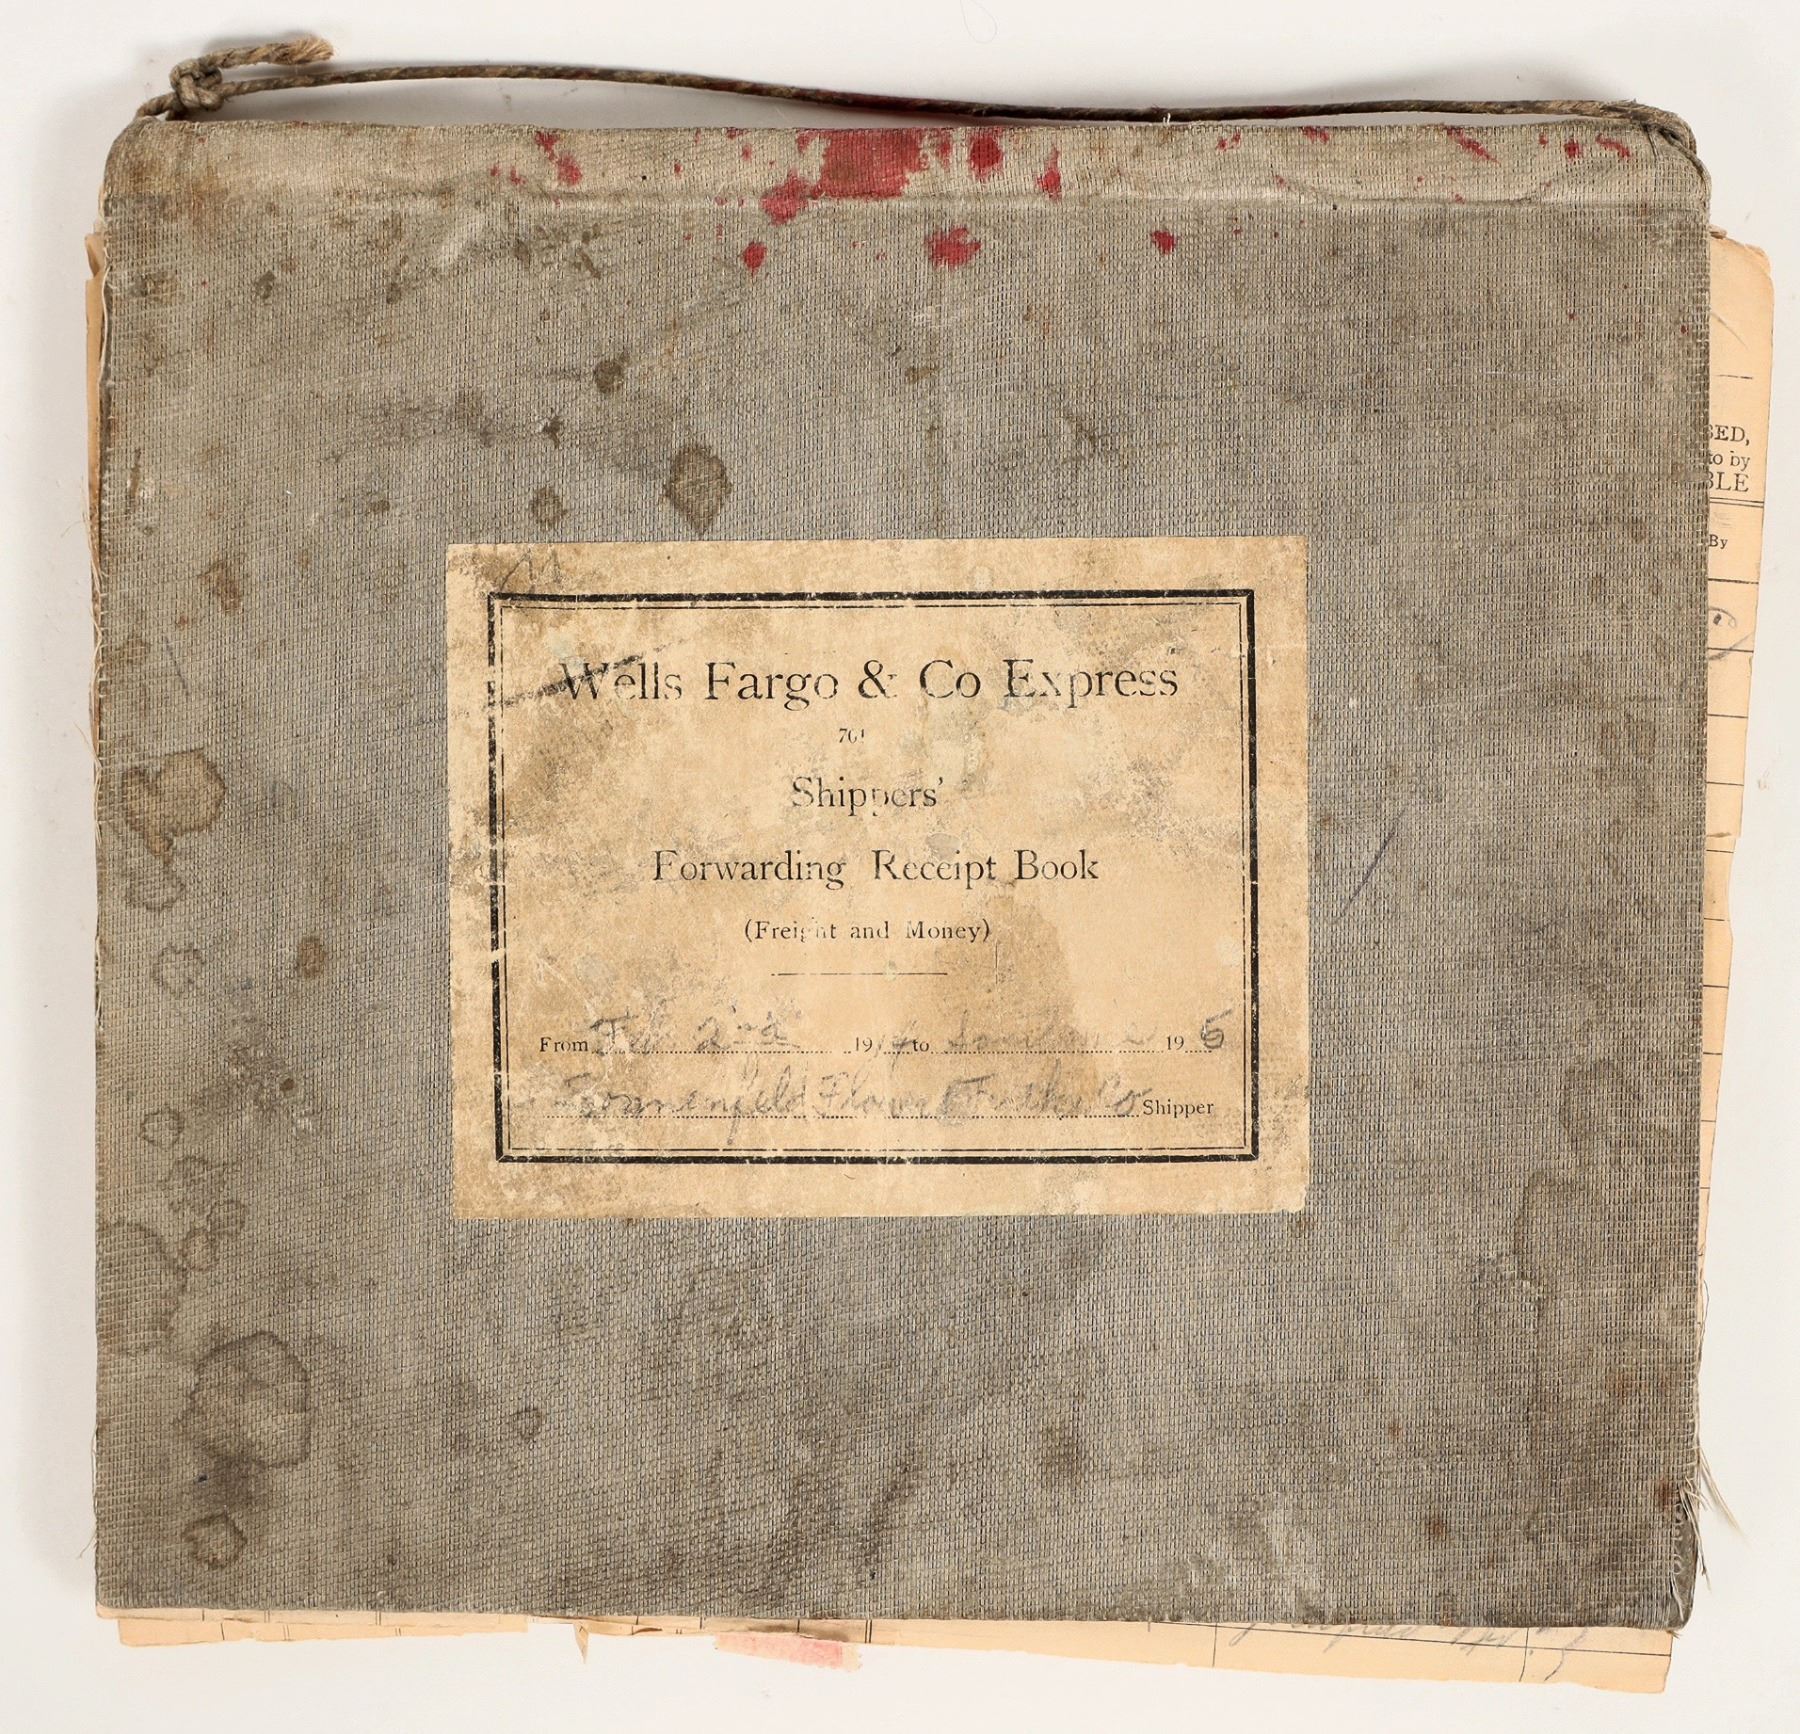 Wells Fargo & Co Express
701
Shippers'
Forwarding Receipt Book
(Freight and Money)
From Feb. 2nd 1914 to Sometime 19 5
Sonnenfeld Flower & Co Shipper
BED,
to by
BLE
By